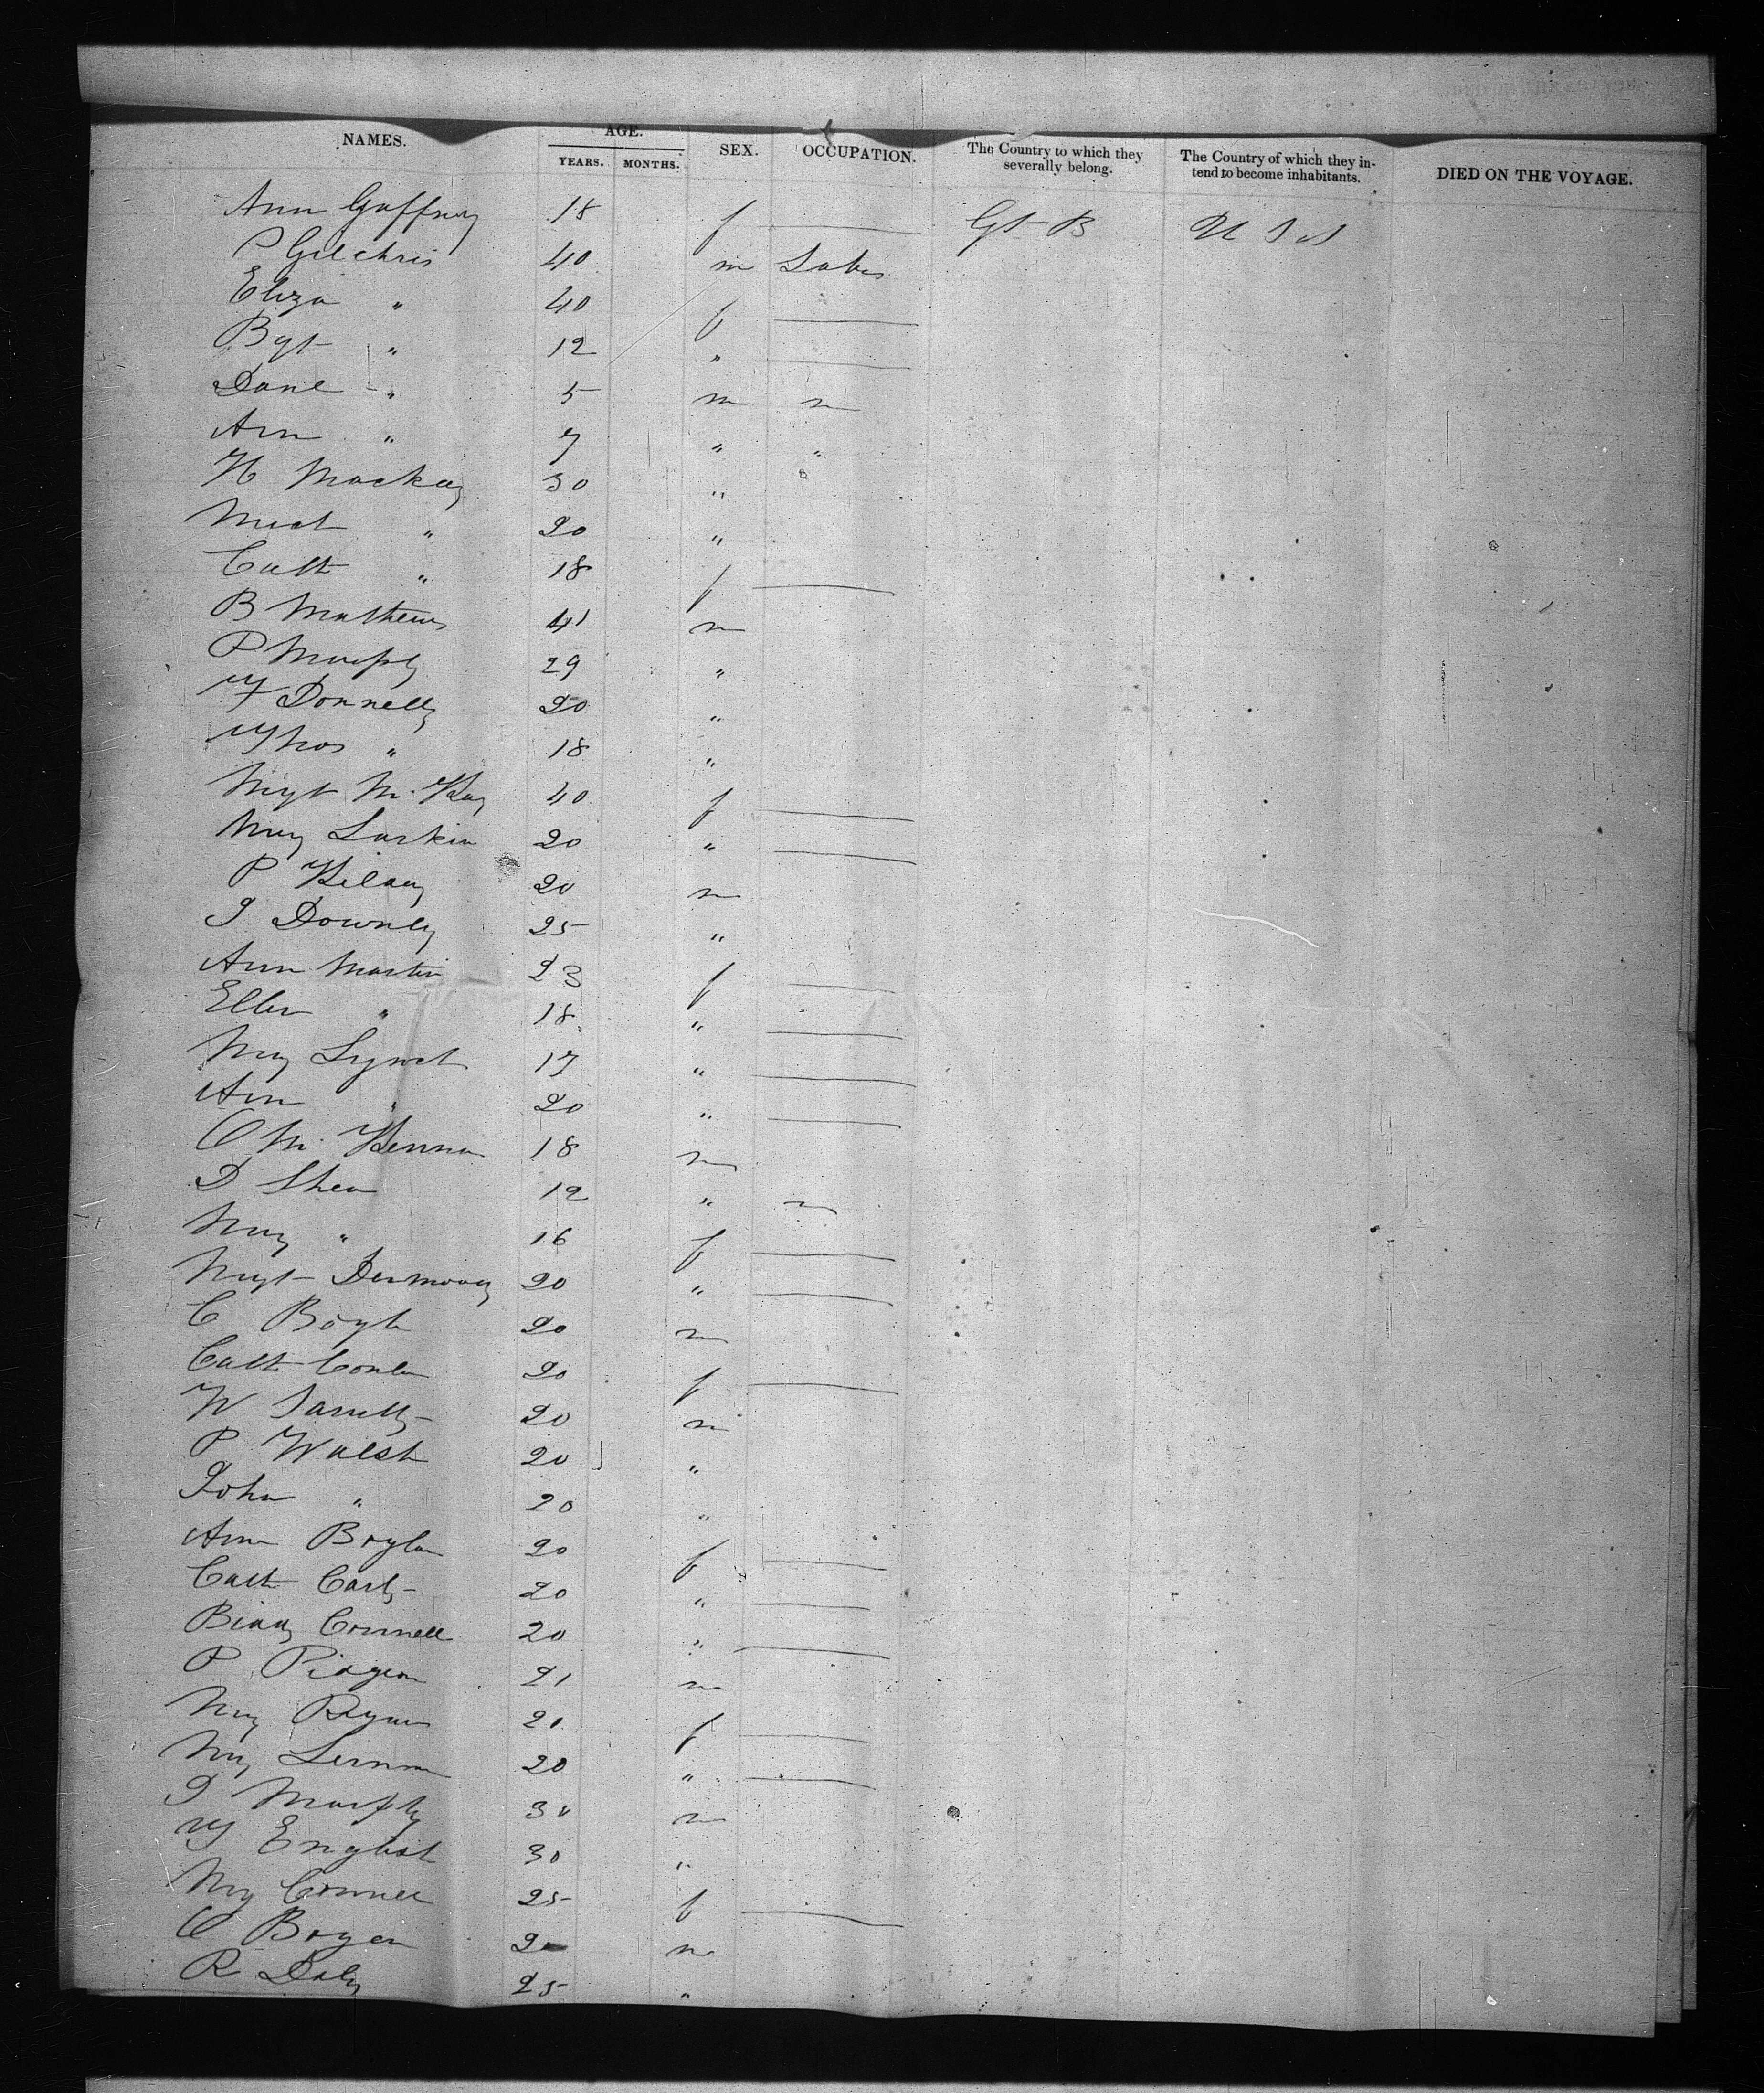 NAMES. AGE. SEX. OCCUPATION. The Country to which they severally belong. The Country of which they intend to become inhabitants. DIED ON THE VOYAGE.
YEARS. MONTHS.
Ann Gaffney 18 f — Gt B U S
P Gilchris 40 m Labr
Eliza " 40 f —
Bgt " 12 " —
Danl " 5 m
Ann " 7 " "
H Mackay 30 "
" 20 "
Cath " 18 f —
B Mathews 41 m
P Murphy 29 "
F Donnelly 20 "
Thos " 18 "
Mgt Mc Kay 40 f —
Mary Larkin 20 " —
P Kilday 20 m
J Downey 25 "
Ann Martin 23 f —
Ellen " 18 " —
Mary Lynch 17 " —
Ann " 20 " —
O Mc Kenna 18 m
D Shea 12 "
Mary " 16 f —
Mgt 20 " —
C Boyle 20 m
Cath Conlan 20 f —
W 20 m
P Walsh 20 "
John " 20 "
Ann Boylan 20 f —
Cath 20 " —
Biddy Connell 20 " —
P Pidgeon 21 m
My Ryan 20 f —
My 20 " —
J Murphy 30 m
T English 30 "
My Connell 25 f —
O 20 m
R Daly 25 "